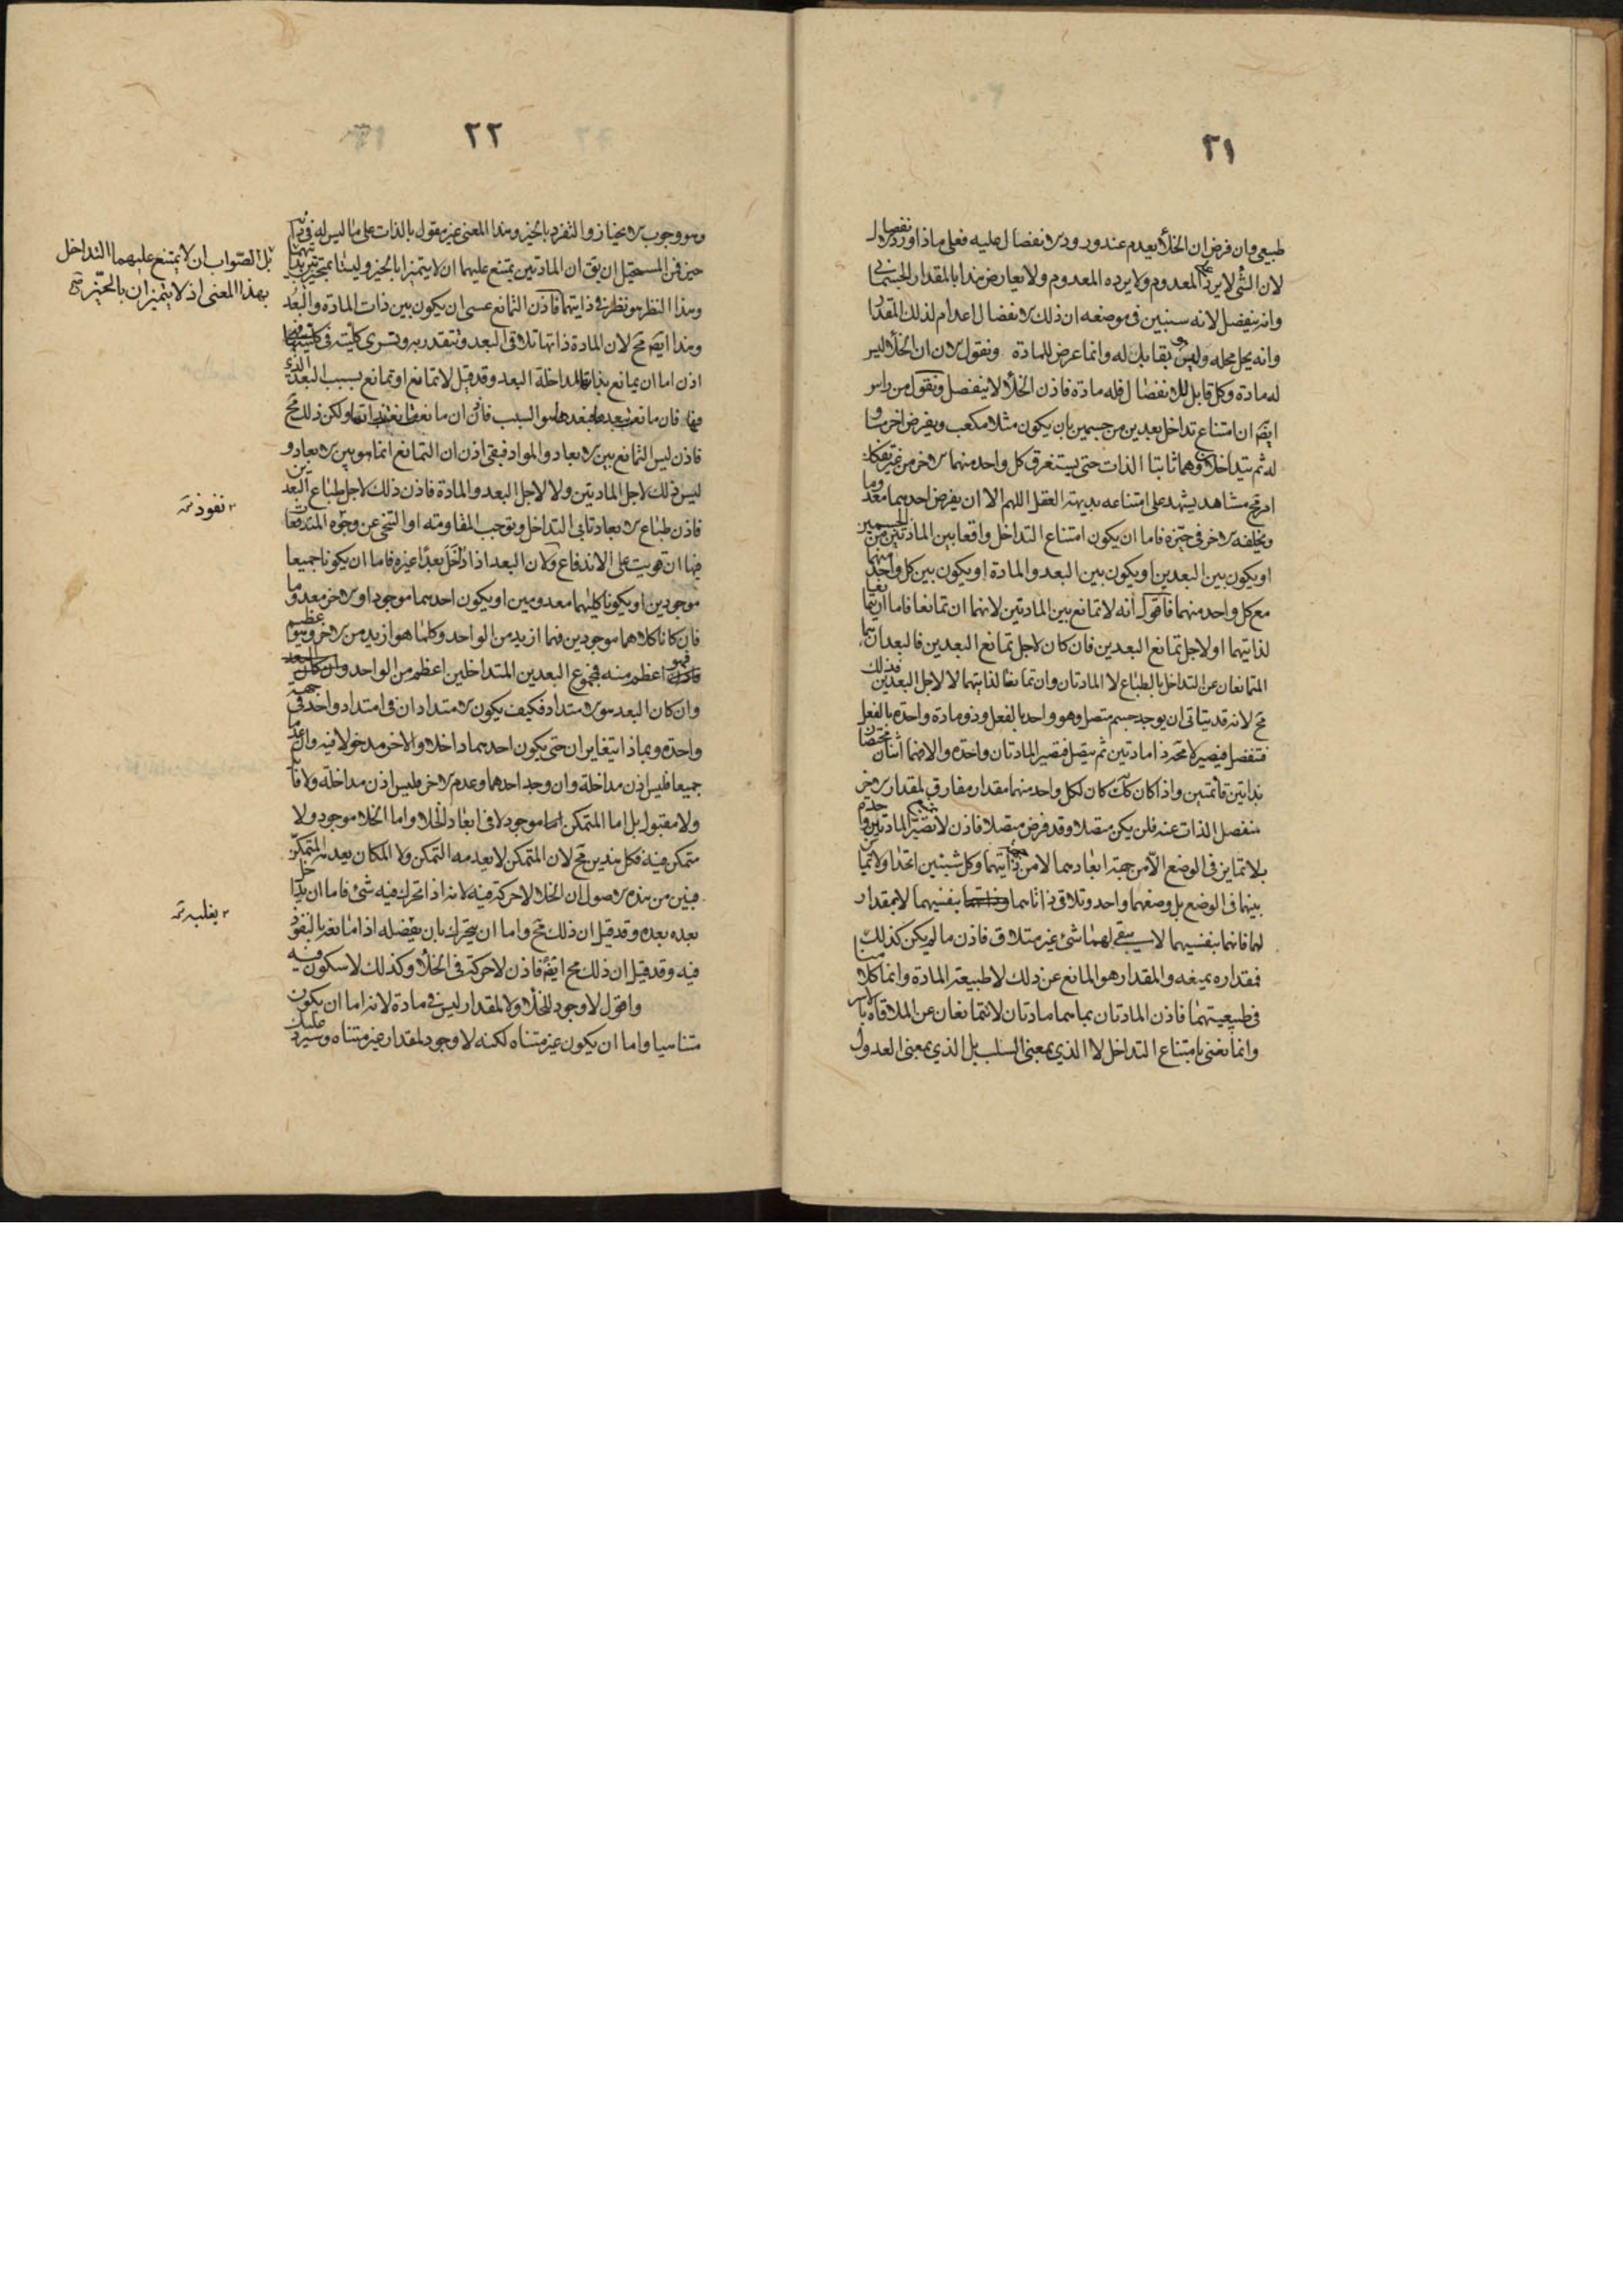 ٢١
طبيعى وان فرض ان الخلأ يعدم عند ورود الانفصال عليه فعلى ماذا ورد الانفصال
لان الشئ لا يرد على المعدوم ولا يرده المعدوم ولا يعارض هذا بالمقدار الجسمانى
وانه ينفصل لانه سنبين فى موضعه ان ذلك الانفصال اعدام لذلك المقدار
وانه يحل محله وليس بقابل له وانما عرض للمادة ونقول الان ان الخلأ ليس
له مادة وكل قابل للانفصال فله مادة فاذن الخلأ لا ينفصل ونقول من راس
ايضا ان امتناع تداخل بعدين من جسمين بان يكون مثلا مكعب ويفرض اخر مساو
له ثم يتداخلان وهما ثابتا الذات حتى يستغرق كل واحد منهما الاخر من غير
امر مح مشاهد يشهد على امتناعه بديهة العقل اللهم الا ان يفرض احدهما معدوما
ويخلفه الاخر فى حيزه فاما ان يكون امتناع التداخل واقعا بين المادتين من الجسمين
او يكون بين البعدين او يكون بين البعد والمادة او يكون بين كل واحد منهما
مع كل واحد منهما فاقول انه لا تمانع بين المادتين لانهما ان تمانعا فاما ان تمانعا
لذاتيهما او لاجل تمانع البعدين فان كان لاجل تمانع البعدين فالبعدان هما
المتمانعان عن التداخل بالطباع لا المادتان وان تمانعا لذاتيهما لا لاجل البعدين فذلك
مح لانه قد يتاتى ان يوجد جسم متصل وهو واحد بالفعل وذو مادة واحدة بالفعل
فتنفصل فيصير لا محة ذا مادتين ثم يتصل فيصير المادتان واحدة والا فهما اثنان
بذاتين قائمتين واذا كان كك كان لكل واحد منهما مقدار مفارق لمقدار الاخر
منفصل الذات عنه فلن يكن متصلا وقد فرض متصلا فاذن لا تصير المادتين
بلا تمايز فى الوضع الا من جهة ابعادهما لا من ذاتيهما وكل شيئين اتحدا ولا تمايز
بينهما فى الوضع بل وضعهما واحد وتلاقى ذاتاهما بنفسيهما لا بمقدار
لهما فانهما بنفسيهما لا يبقى لهما شئ غير متلاق فاذن ما لم يكن كذلك
فمقداره يمنعه والمقدار هو المانع عن ذلك لا طبيعة المادة وانما كلامنا
فى طبيعتيهما فاذن المادتان بماهما مادتان لا تتمانعان عن الملاقاة بالاسر
وانما نعنى بامتناع التداخل لا الذى بمعنى السلب بل الذى بمعنى العدول
٢٢
وهو وجوب الانحياز والتفرد بالحيز وهذا المعنى غير مقول بالذات على ما ليس له فى ذاته
حيز فمن المستحيل ان يق ان المادتين يمتنع عليهما ان لا يتميزا بالحيز وليستا بمتحيزتين بذاتيهما
وهذا النظر هو نظر فى ذاتيهما فاذن التمانع عسى ان يكون بين ذات المادة والبعد
وهذا ايضا مح لان المادة ذاتها تلاقى البعد وتتقدر به وتسرى كليته فى كليتها
اذن اما ان يمانع بذاتها لمداخلة البعد وقد قيل لا تمانع او تمانع بسبب البعد الذى
فيها فان مانعت ببعدها فبعدها هو السبب ولكن ذلك مح
فاذن ليس التمانع بين الابعاد والمواد فبقى اذن ان التمانع انما هو بين الابعاد و
ليس ذلك لاجل المادتين ولا لاجل البعد والمادة فاذن ذلك لاجل طباع البعدين
فاذن طباع الابعاد تابى التداخل وتوجب المقاومة او التنحى عن وجوه المندفعات
فيها ان قويت على الاندفاع ولان البعد اذا دخل بعدا غيره فاما ان يكونا جميعا
موجودين او يكونا كليهما معدومين او يكون احدهما موجودا والاخر معدوما
فان كانا كلاهما موجودين فهما ازيد من الواحد وكلما هو ازيد من الاخر وهو عظيم
فهو اعظم منه فمجموع البعدين المتداخلين اعظم من الواحد
وان كان البعد هو الامتداد فكيف يكون الامتدادان فى امتداد واحد فى جهة
واحدة وبماذا يتغايران حتى يكون احدهما داخلا والاخر مدخولا فيه وان عدما
جميعا فليس اذن مداخلة وان وجد احدهما وعدم الاخر فليس اذن مداخلة ولا قابل
ولا مقبول بل اما المتمكن موجود لا فى ابعاد الخلا واما الخلا موجود ولا
متمكن فيه فكل هذين مح لان المتمكن لا يعدمه التمكن ولا المكان يعدمه المتمكن
فبين من هذه الاصول ان الخلا لا حركة فيه لانه اذا تحرك فيه شئ فاما ان يداخل
بعده بعده وقد قيل ان ذلك مح واما ان يتحرك بان يفصله اذا مانعه بالنفوذ
فيه وقد قيل ان ذلك مح ايضا فاذن لا حركة فى الخلأ وكذلك لا سكون فيه
واقول لا وجود للخلأ ولا لمقدار ليس فى مادة لانه اما ان يكون
متناهيا واما ان يكون غير متناه لكنه لا وجود لمقدار غير متناه وسيرد عليك
بل الصواب ان لا يمتنع عليهما التداخل
بهذا المعنى اذ لا يتميزان بالحيز
نفوذ
يغلبه